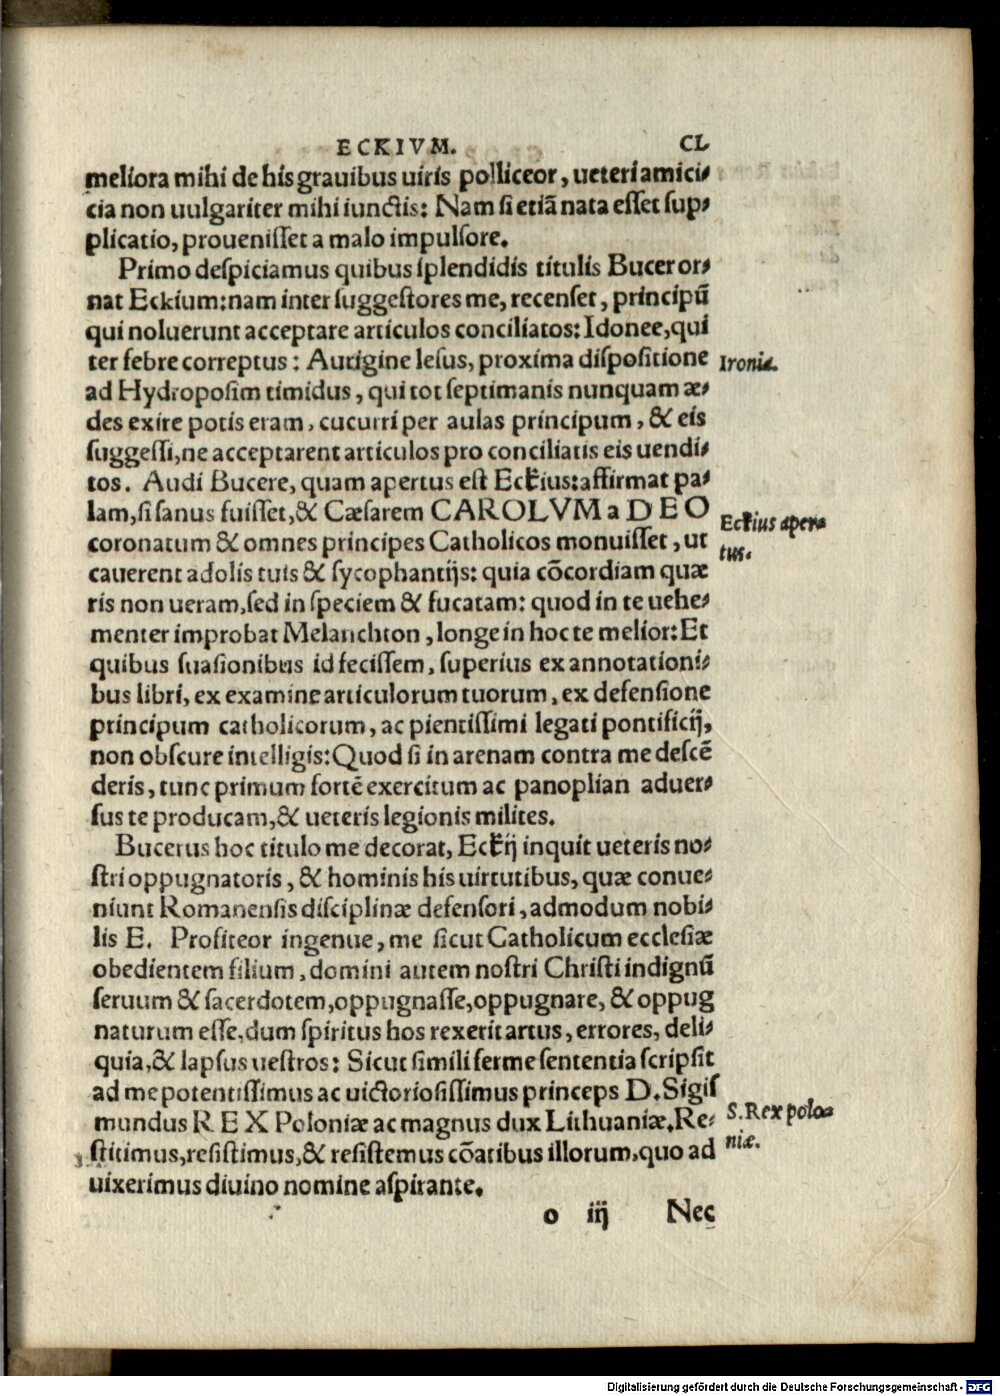 ECKIVM. CL
meliora mihi de his grauibus uiris polliceor, ueteri amici⸗
cia non uulgariter mihi iunctis: Nam si etiã nata esset sup⸗
plicatio, prouenisset a malo impulsore.
Primo despiciamus quibus splendidis titulis Bucer or⸗
nat Eckium: nam inter suggestores me, recenset, principũ
qui noluerunt acceptare articulos conciliatos: Idonee, qui
ter febre correptus: Aurigine lesus, proxima dispositione
Ironia.
ad Hydroposim timidus, qui tot septimanis nunquam æ⸗
des exire potis eram, cucurri per aulas principum, & eis
suggessi, ne acceptarent articulos pro conciliatis eis uendi⸗
tos. Audi Bucere, quam apertus est Eckius: affirmat pa⸗
lam, si sanus fuisset, & Cæsarem CAROLVM a DEO
Eckius aper⸗
coronatum & omnes principes Catholicos monuisset, ut
tus.
cauerent a dolis tuis & sycophantijs: quia cõcordiam quæ
ris non ueram, sed in speciem & fucatam: quod in te uehe⸗
menter improbat Melanchton, longe in hoc te melior: Et
quibus suasionibus id fecissem, superius ex annotationi⸗
bus libri, ex examine articulorum tuorum, ex defensione
principum catholicorum, ac pientissimi legati pontificij,
non obscure intelligis: Quod si in arenam contra me descẽ
deris, tunc primum fortẽ exercitum ac panoplian aduer⸗
sus te producam, & ueteris legionis milites.
Bucerus hoc titulo me decorat, Eckij inquit ueteris no⸗
stri oppugnatoris, & hominis his uirtutibus, quæ conue⸗
niunt Romanensis disciplinæ defensori, admodum nobi⸗
lis E. Profiteor ingenue, me sicut Catholicum ecclesiæ
obedientem filium, domini autem nostri Christi indignũ
seruum & sacerdotem, oppugnasse, oppugnare, & oppug
naturum esse, dum spiritus hos rexerit artus, errores, deli⸗
quia, & lapsus uestros: Sicut simili ferme sententia scripsit
ad me potentissimus ac uictoriosissimus princeps D. Sigis
mundus REX Poloniæ ac magnus dux Lithuaniæ. Re⸗
S. Rex polo⸗
niæ.
stitimus, resistimus, & resistemus cõatibus illorum, quo ad
uixerimus diuino nomine aspirante.
o iij Nec
Digitalisierung gefördert durch die Deutsche Forschungsgemeinschaft - DFG